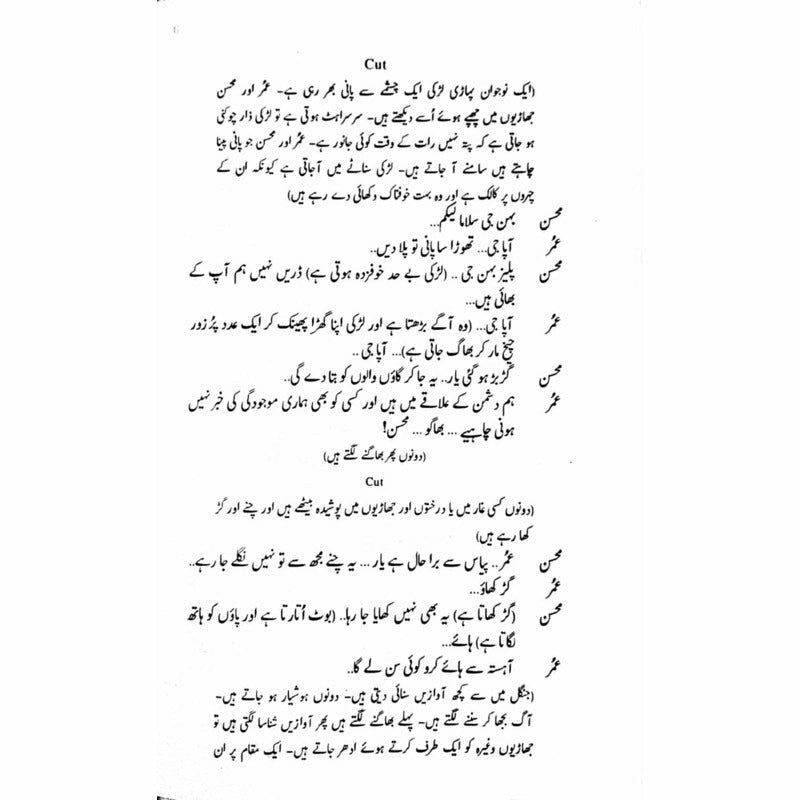 Cut
(ایک نوجوان پہاڑی لڑکی ایک چشمے سے پانی بھر رہی ہے۔ عمُر اور محسن
جھاڑیوں میں چھپے ہوئے اُسے دیکھتے ہیں۔ سرسراہٹ ہوتی ہے تو لڑکی ذار چوکنی
ہو جاتی ہے کہ پتہ نہیں رات کے وقت کوئی جانور ہے۔ عمُر اور محسن جو پانی پینا
چاہتے ہیں سامنے آ جاتے ہیں۔ لڑکی سناٹے میں آجاتی ہے کیونکہ ان کے
چہروں پر کالک ہے اور وہ بہت خوفناک دکھائی دے رہے ہیں)
محسن بہن جی سلاما لیکم...
عمُر آپا جی... تھوڑا سا پانی تو پلا دیں..
محسن پلیز بہن جی .. (لڑکی بے حد خوفزدہ ہوتی ہے) ڈریں نہیں ہم آپ کے
بھائی ہیں...
عمُر آپا جی... (وہ آگے بڑھتا ہے اور لڑکی اپنا گھڑا پھینک کر ایک عدد پرُ زور
چیخ مار کر بھاگ جاتی ہے)... آپا جی ..
محسن گڑبڑ ہو گئی یار.. یہ جا کر گاؤں والوں کو بتا دے گی..
عمُر ہم دشمن کے علاقے میں ہیں اور کسی کو بھی ہماری موجودگی کی خبر نہیں
ہونی چاہیے ... بھاگو ... محسن!
(دونوں پھر بھاگنے لگتے ہیں)
Cut
(دونوں کسی غار میں یا درختوں اور جھاڑیوں میں پوشیدہ بیٹھے ہیں اور چنے اور گڑ
کھا رہے ہیں)
محسن عمُر.. پیاس سے برا حال ہے یار ... یہ چنے مجھ سے تو نہیں نگلے جا رہے..
عمُر گڑ کھاؤ...
محسن (گڑ کھاتا ہے) یہ بھی نہیں کھایا جا رہا.. (بوٹ اُتارتا ہے اور پاؤں کو ہاتھ
لگاتا ہے) ہائے...
عمُر آہستہ سے ہائے کرو کوئی سن لے گا..
(جنگل میں سے کچھ آوازیں سنائی دیتی ہیں۔ دونوں ہوشیار ہو جاتے ہیں۔
آگ بجھا کر سننے لگتے ہیں۔ پہلے بھاگنے لگتے ہیں پھر آوازیں شناسا لگتی ہیں تو
جھاڑیوں وغیرہ کو ایک طرف کرتے ہوئے ادھر جاتے ہیں۔ ایک مقام پر ان